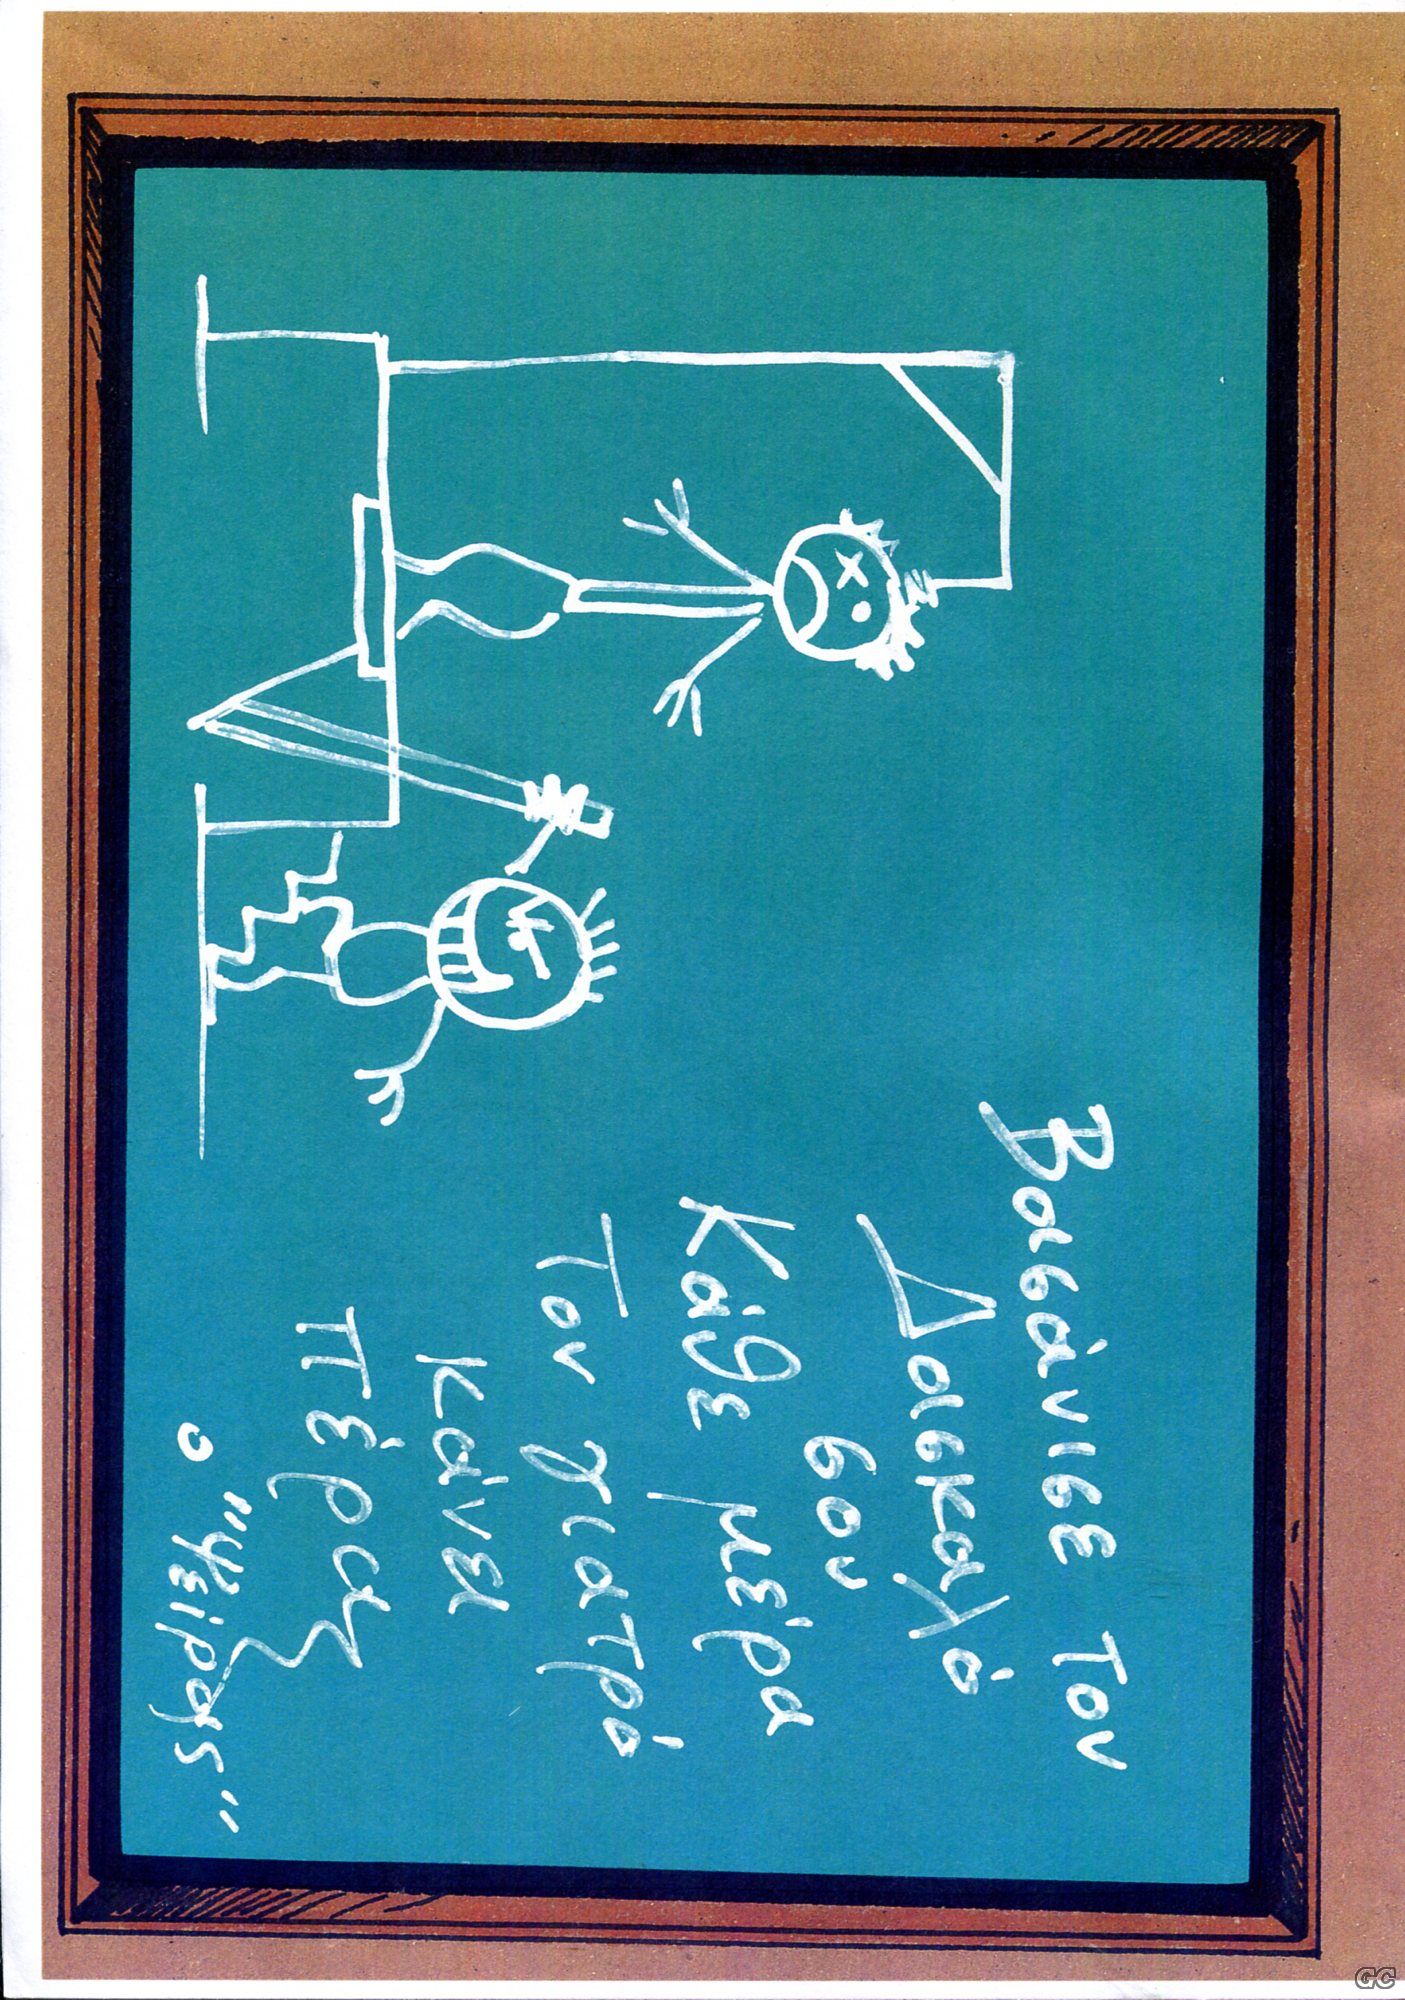 Βασάνισε τον
Δασκαλό
σου
Κάθε μέρα
Τον γιατρό
κάνει
πέρα
ο "χείρας"
GC